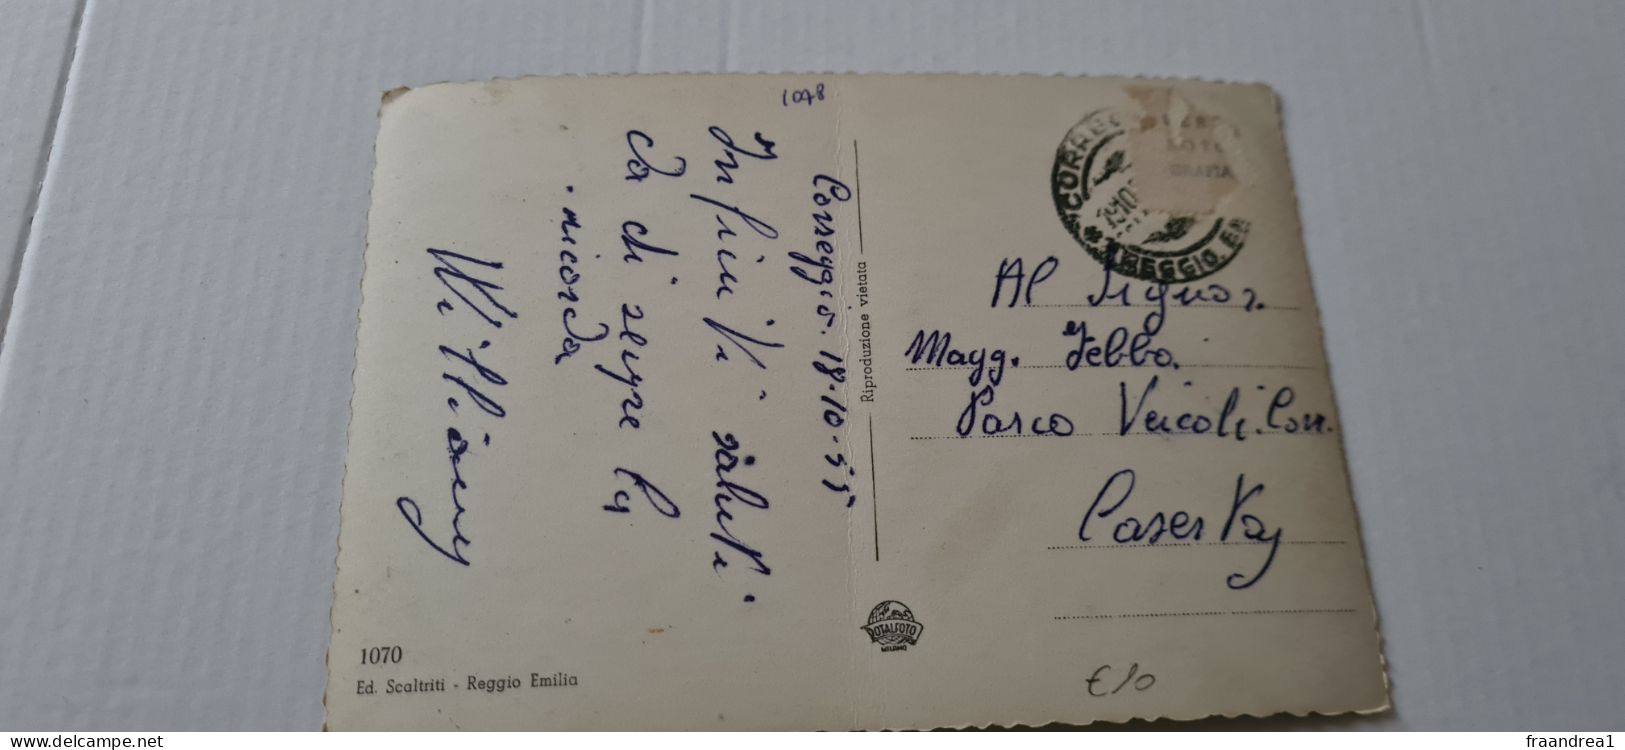 1078
Correggio. 18-10-55
Infiniti saluti
da di sempre la
ricorda
Williams
Riproduzione vietata
CORREG
REGGIO. EM
Al Signor.
Magg. Febbo.
Parco Veicoli. Corr.
Caserta
ROTALFOTO
MILANO
1070
Ed. Scaltriti - Reggio Emilia
€10
delcampe.net
fraandrea1